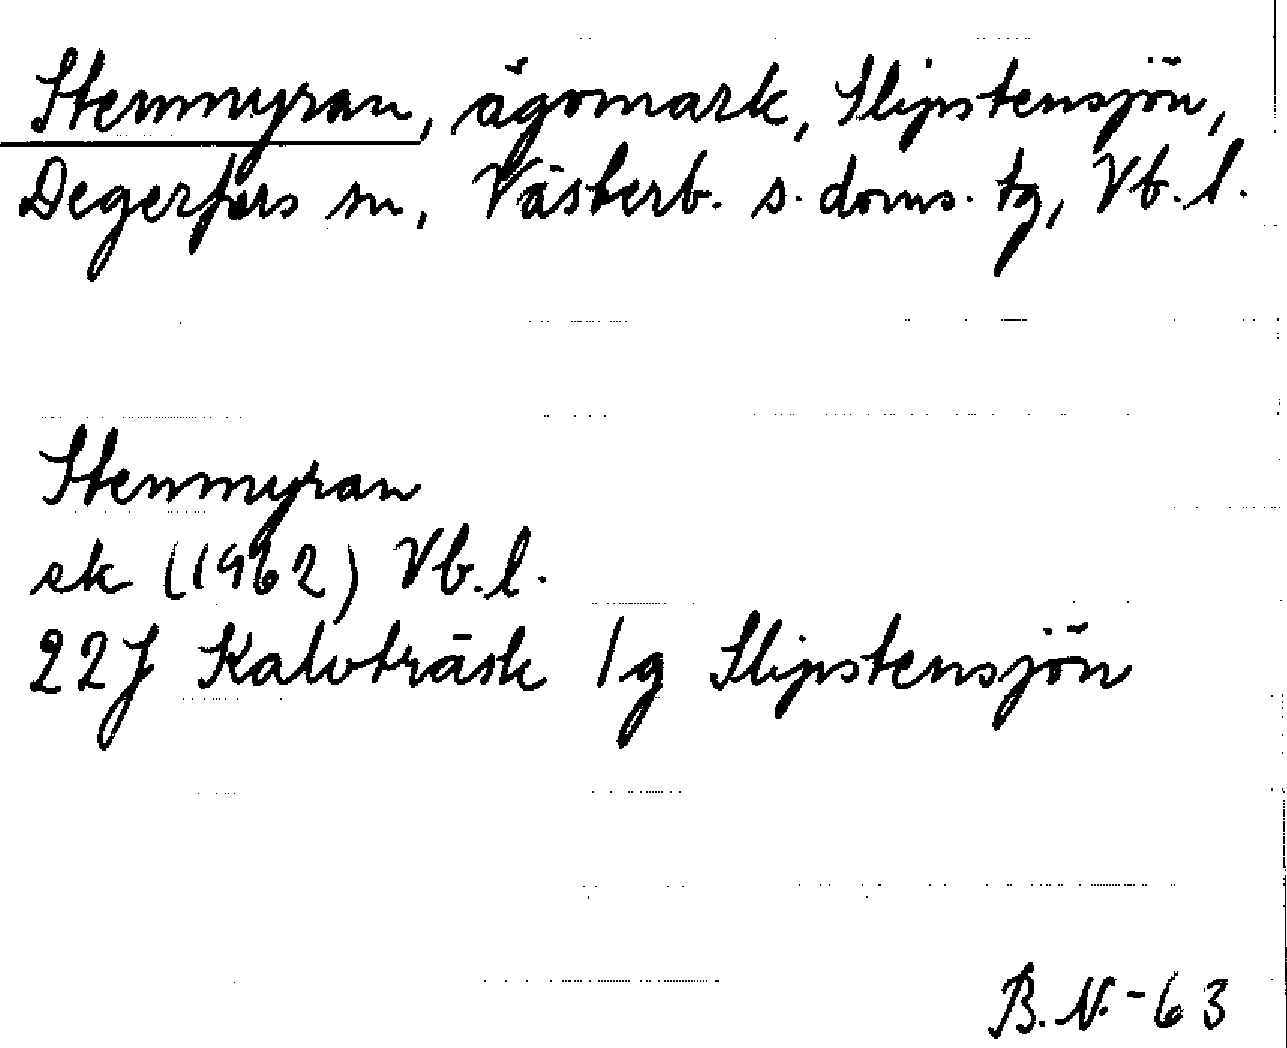 Stenmyran, ägomark, Slipstensjön,
Degerfors sn, Västerb. s. doms. tg, Vb. l.
Stenmyran
ek (1962) Vb. l.
22J Kalvträsk 1g Slipstensjön
B.N.-63